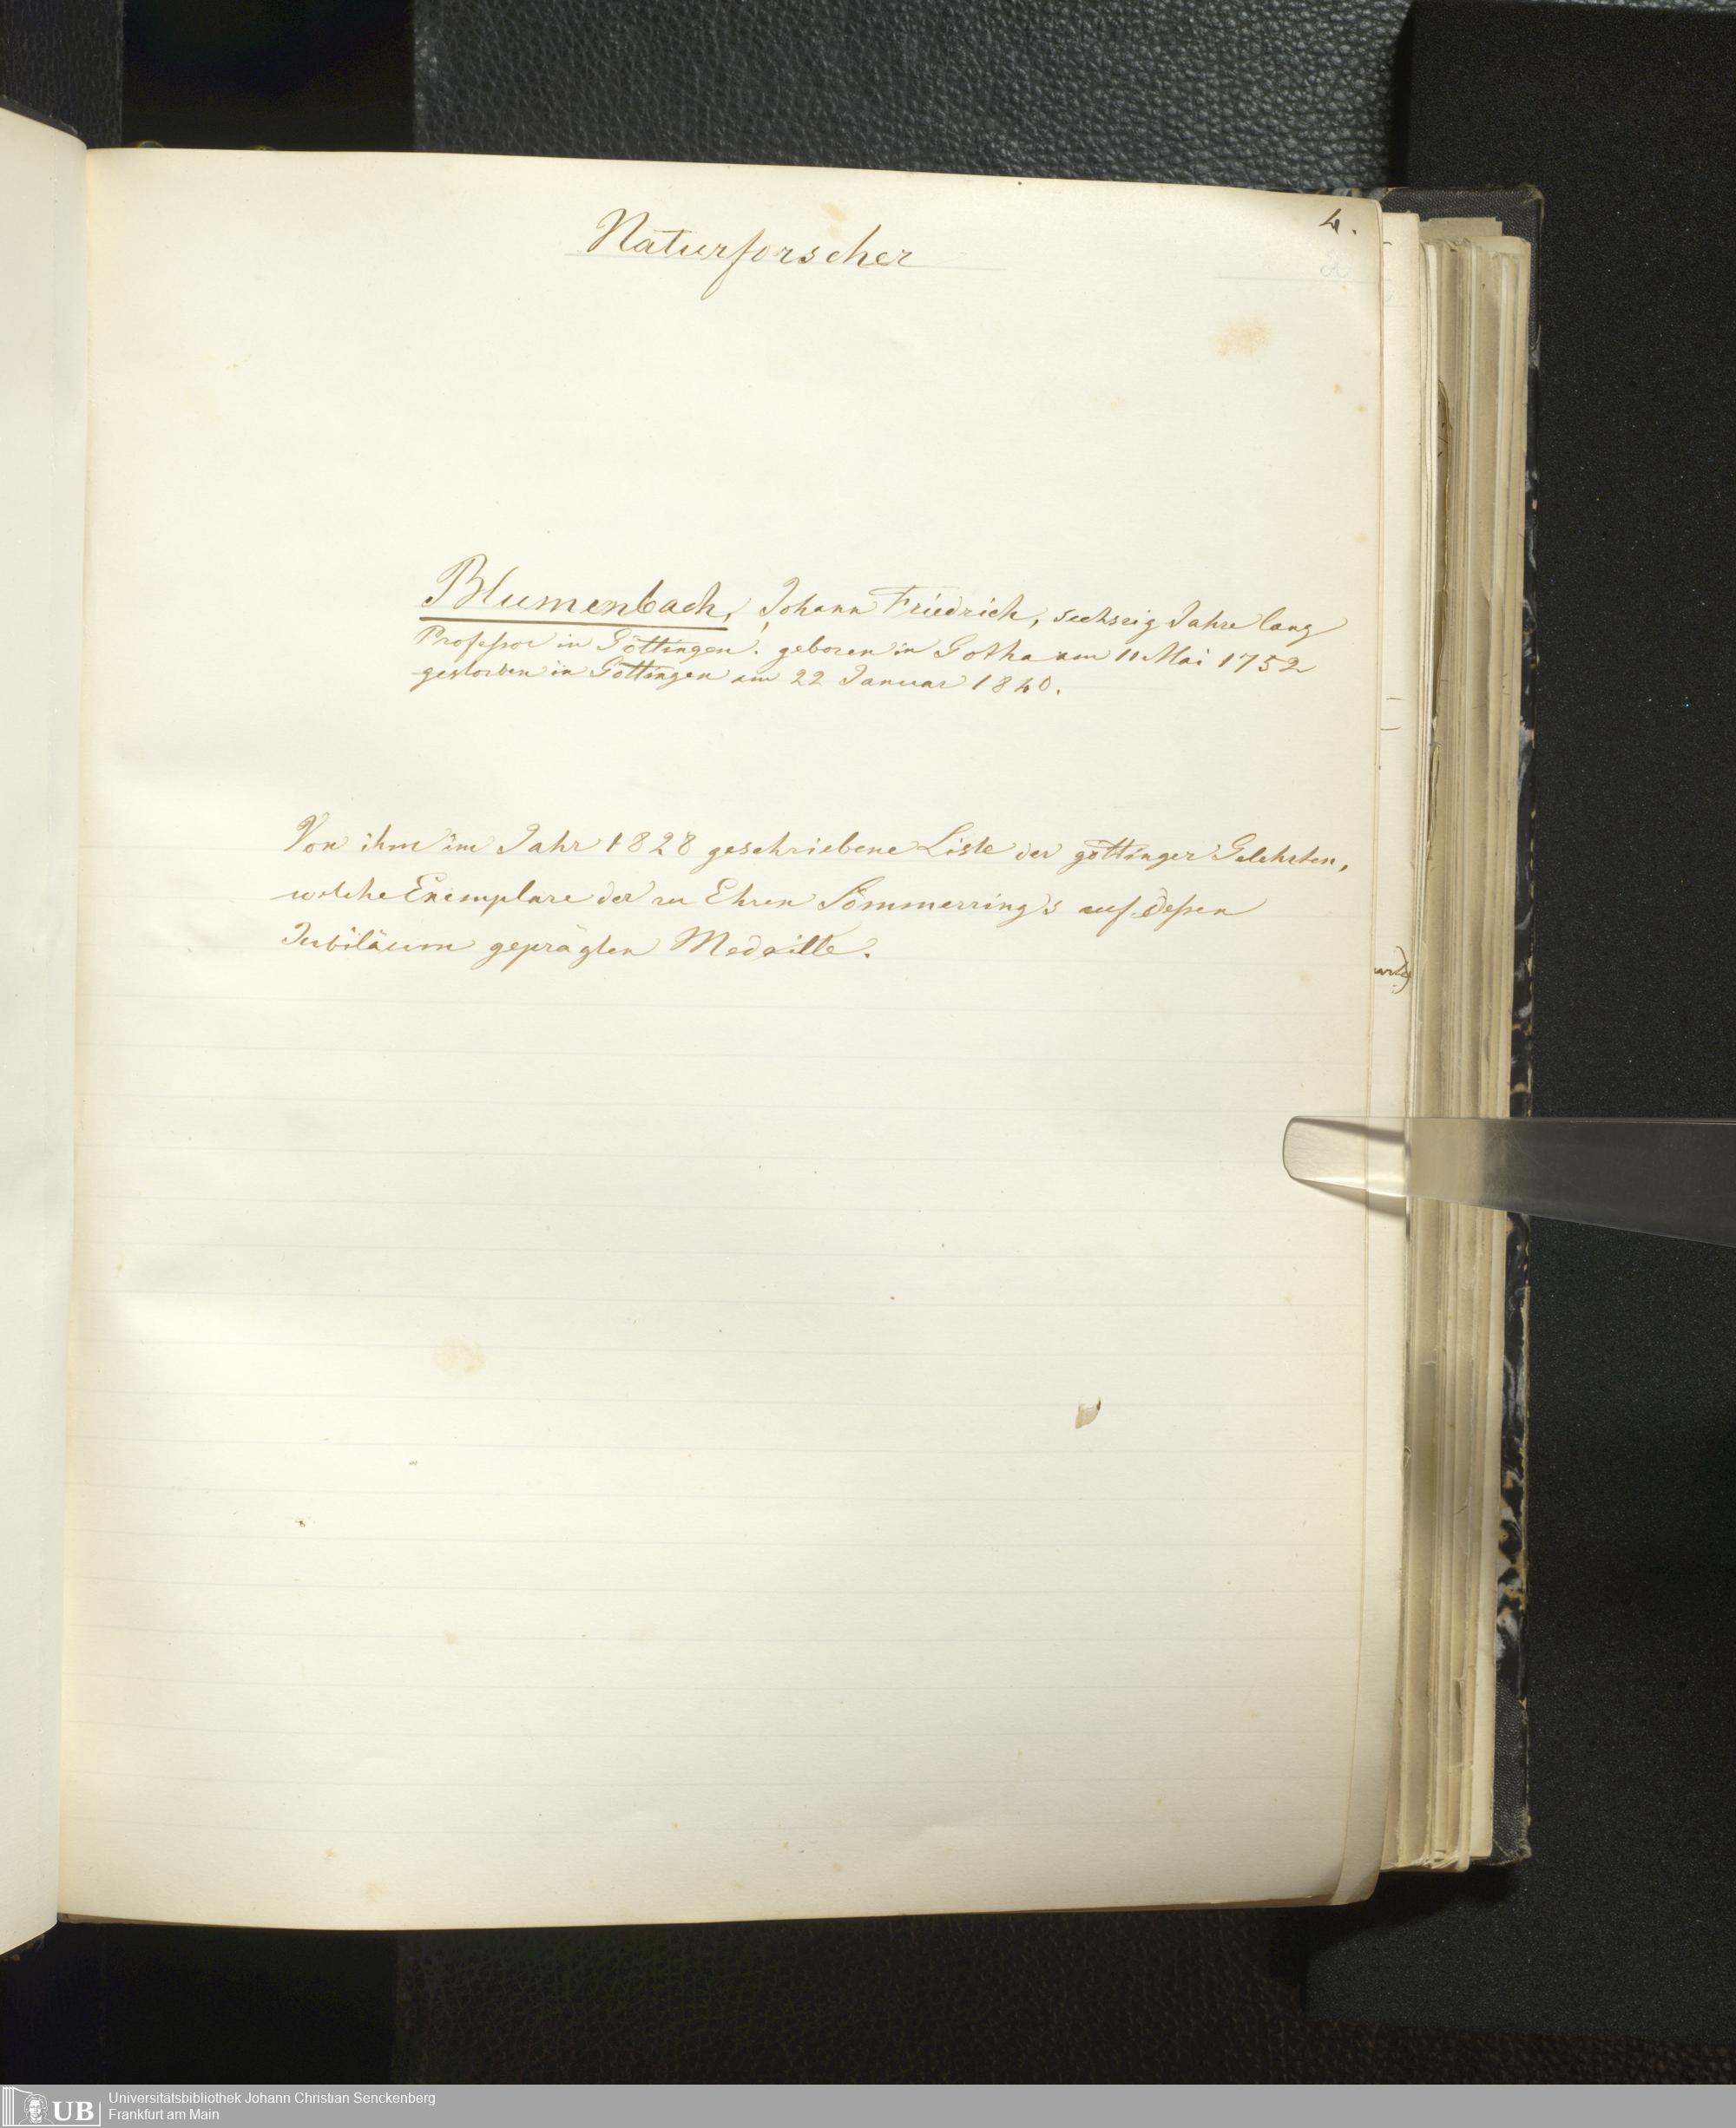 4.
Naturforscher
Blumenbach, Johann Friedrich, sechszig Jahre lang
Professor in Göttingen. geboren in Gotha am 11 Mai 1752
gestorben in Göttingen am 22 Januar 1840.
Von ihm im Jahr 1828 geschriebene Liste der göttinger Gelehrten,
welche Exemplare der zu Ehren Sömmerring's auf dessen
Jubiläum geprägten Medaille.
UB
Universitätsbibliothek Johann Christian Senckenberg
Frankfurt am Main